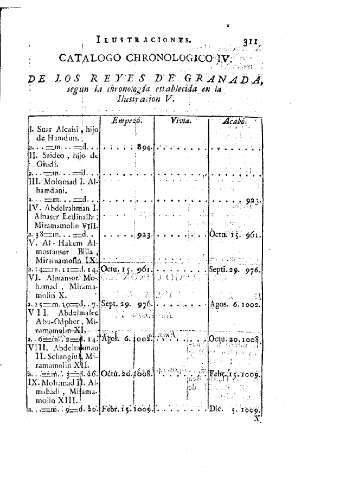 ILUSTRACIONES. 311
CATALOGO CHRONOLOGICO IV.
DE LOS REYES DE GRANADA,
segun la chronología establecida en la
Ilustracion V.
Empezó. Vivia. Acabó.
I. Suar Alcaisi, hijo
de Hamdun.
a. ...=m. ...=d. 894.
II. Saideo, hijo de
Giudi.
a. ...=m. ...=d.
III. Mohamad I. Al-
hamdani.
a. ...=m. ...=d. 923.
IV. Abdelrahman I.
Alnaser Ledinalla:
Miramamolin VIII.
a. 38=m. ...=d. 923. Octu. 15. 961.
V. Al-Hakem Al-
mostanser Billa,
Miramamolin IX.
a. 14=m. 11=d. 14. Octu. 15. 961. Seti. 29. 976.
VI. Almansor Mo-
hamad, Mirama-
molin X.
a. 25=m. 10=d. 7. Sept. 29. 976. Agos. 6. 1002.
VII. Abdelmalec
Abu-Odpher, Mi-
ramamolin XI.
a. 6=m. 2=d. 14. Agos. 6. 1002. Octu. 20. 1008.
VIII. Abdelrahman
II. Schangiul, Mi-
ramamolin XII.
a. ...=m. 3=d. 26. Octu. 20. 1008. Febr. 15. 1009.
IX. Mohamad II. Al-
mahadi, Mirama-
molin XIII.
a. ...=m. 9=d. 20. Febr. 15. 1009. Dic. 5. 1009.
X.